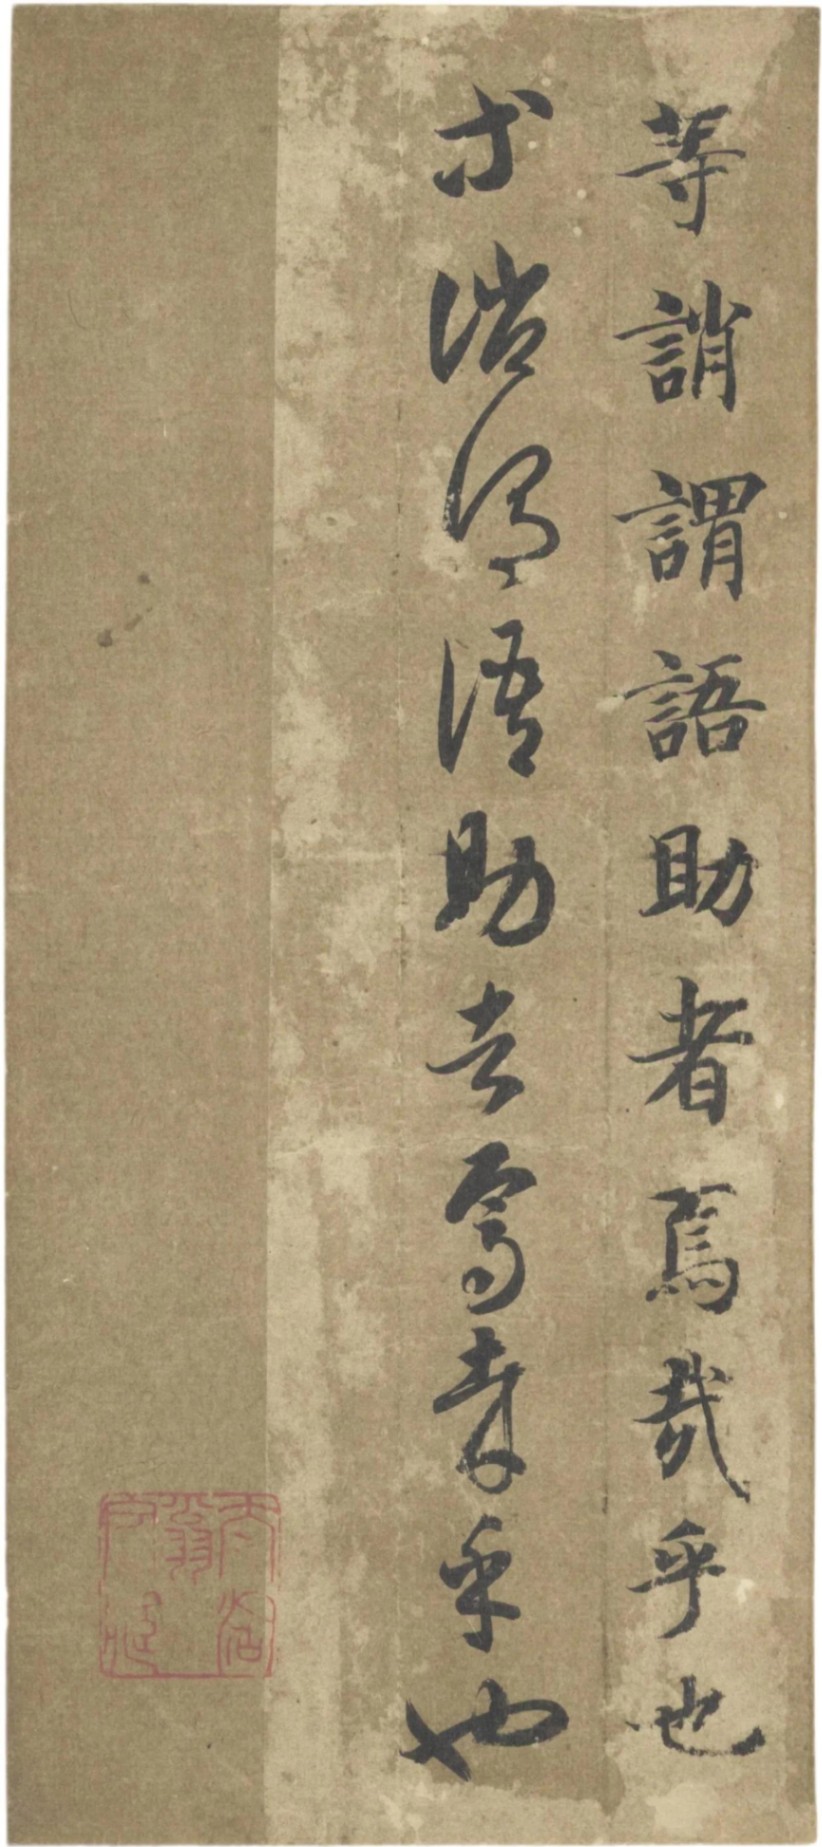 等誚謂語助者焉哉乎也
等誚謂語助者焉哉乎也